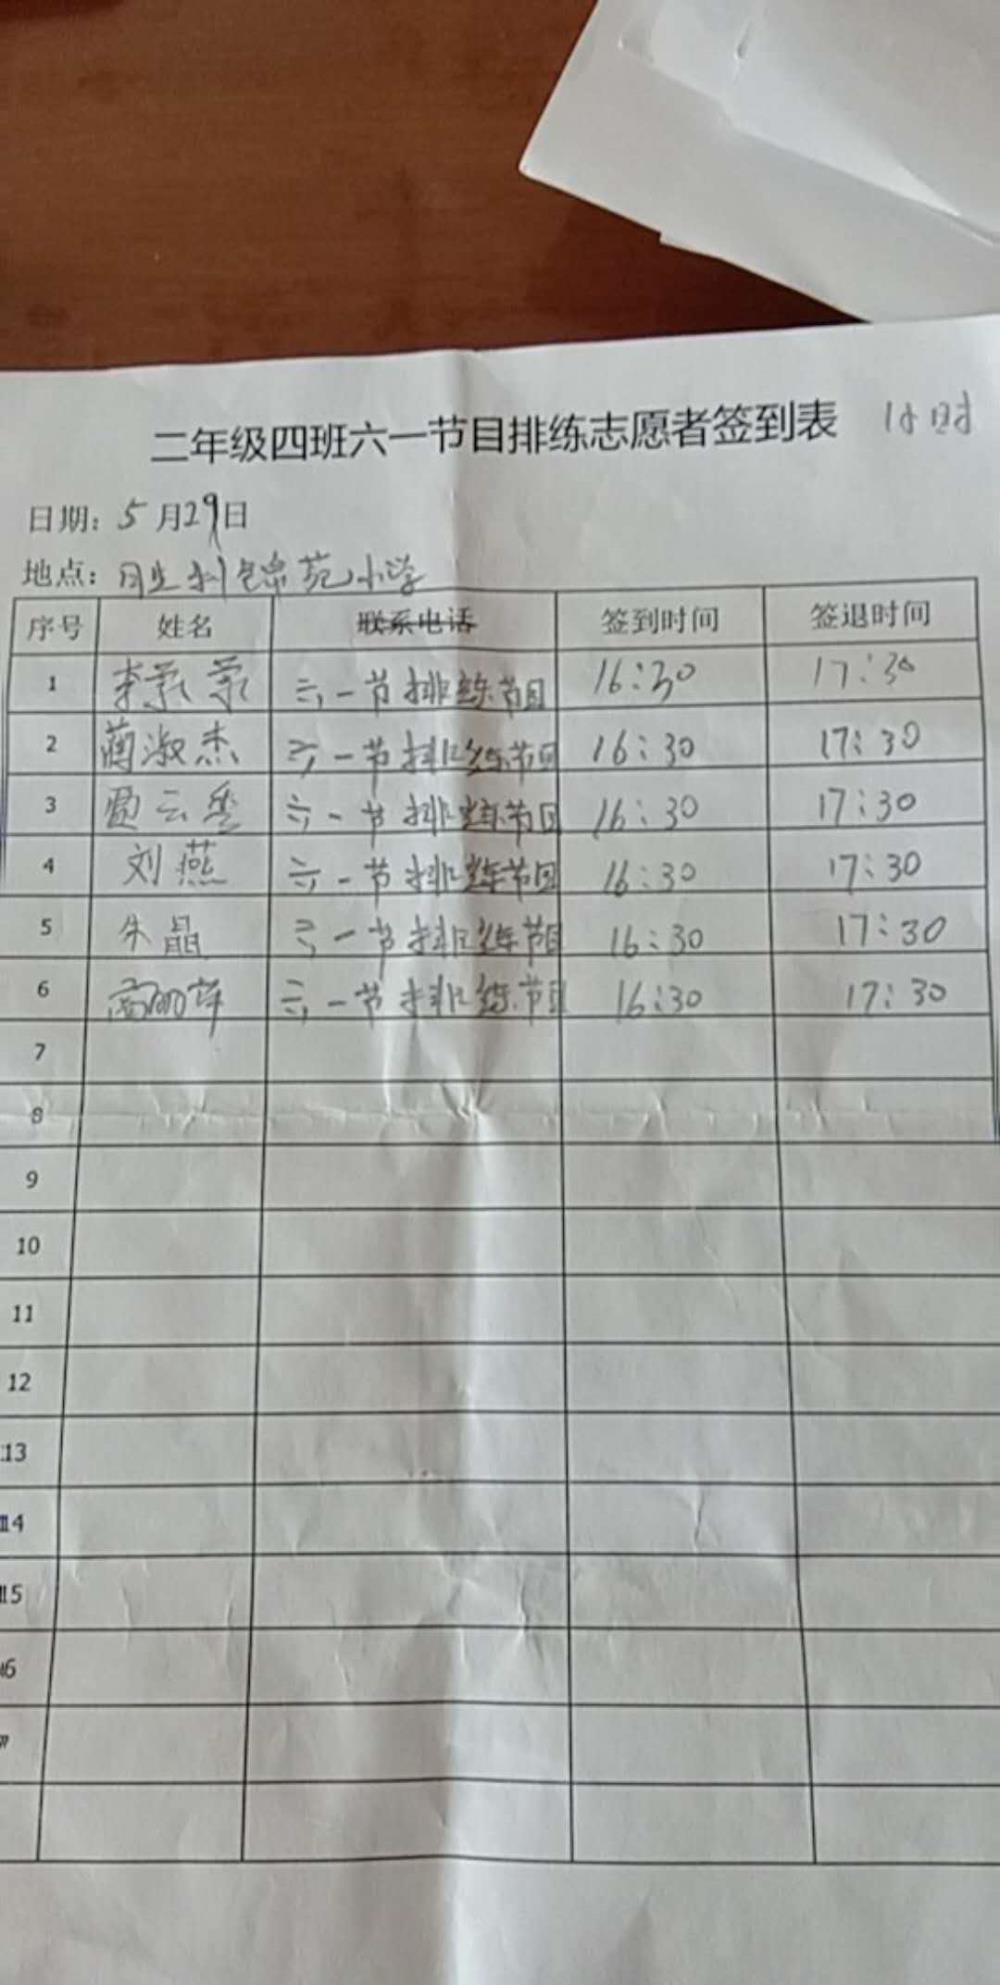 二年级四班六一节目排练志愿者签到表 1小时
日期: 5月29日
地点: 小学
序号 姓名 联系电话 签到时间 签退时间
1 李 六一节排练节目 16:30 17:30
2 蔺淑杰 六一节排练节目 16:30 17:30
3 云 六一节排练节目 16:30 17:30
4 刘燕 六一节排练节目 16:30 17:30
5 朱晶 六一节排练节目 16:30 17:30
6 高 六一节排练节目 16:30 17:30
7
8
9
10
11
12
13
14
15